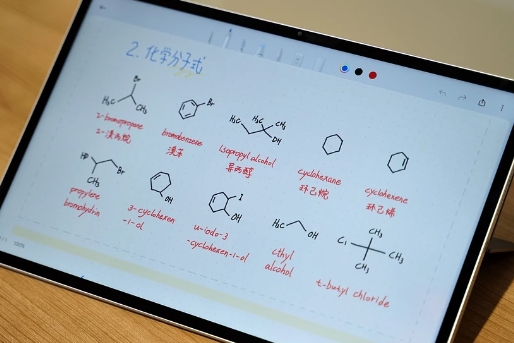 2. 化学分子式
Br
H₃C CH₃
2-bromopropane
2-溴丙烷
Br
bromobenzene
溴苯
H₃C H₃C CH₃
OH
Isopropyl alcohol
异丙醇
cyclohexane
环己烷
cyclohexene
环己烯
HO Br
CH₃
propylene
bromohydrin
OH
3-cyclohexen
-1-ol
I
OH
u-iodo-3
-cyclohexen-1-ol
H₃C OH
ethyl
alcohol
CH₃
Cl CH₃
CH₃
t-butyl chloride